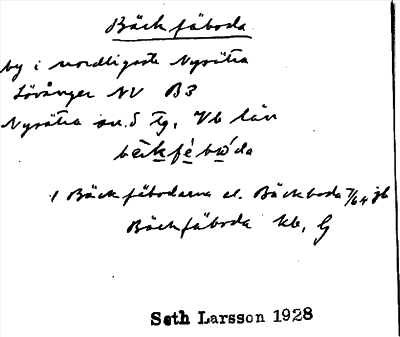 Bäckfäboda
by i nordligaste Nysätra
Lövånger NV B3
Nysätra sn. S Tg, Vb län
bäkfébωda
1 Bäckfäbodarna el. Bäckboda 7/64 jb
Bäckfäboda kb, G
Seth Larsson 1928